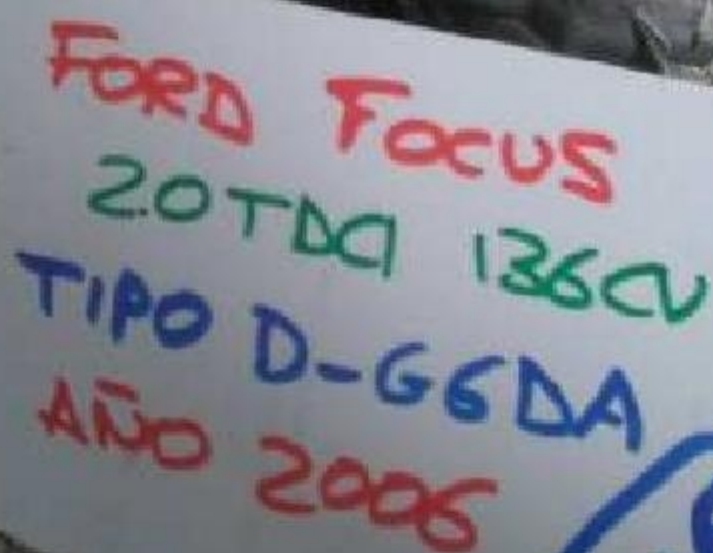 FORD FOCUS
2.0 TDCI 136CV
TIPO D-G6DA
AÑO 2006